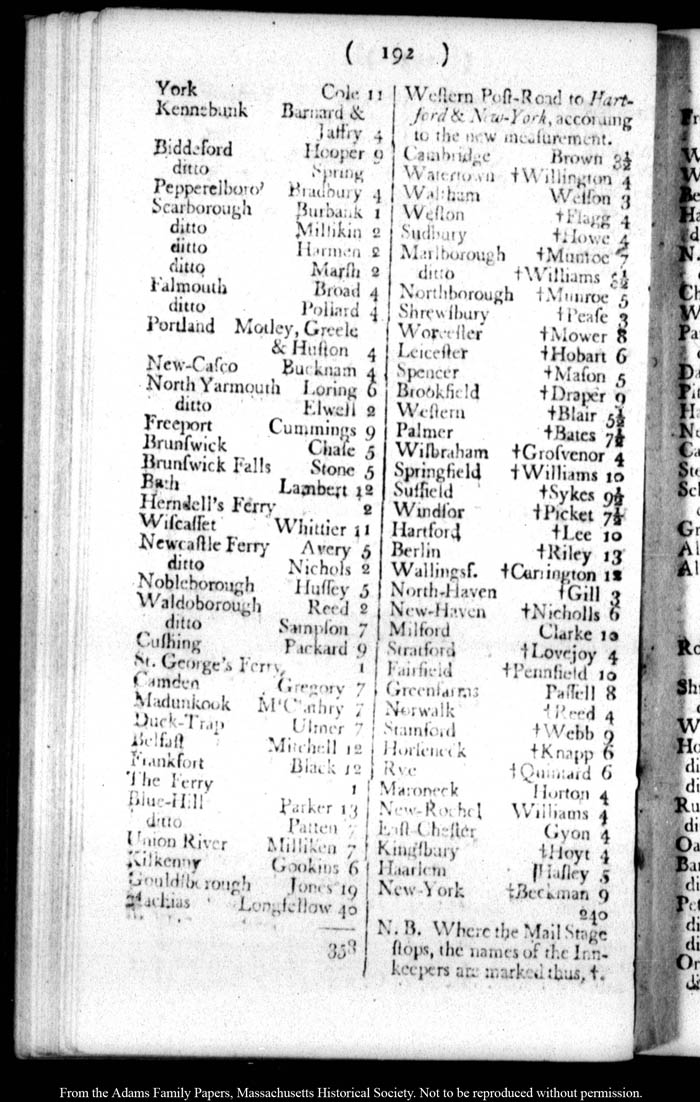 ( 192 )
York Cole 11
Kennebunk Barnard &
Jaffry 4
Biddeford Hooper 9
ditto Spring
Pepperelboro' Bradbury 4
Scarborough Burbank 1
ditto Millikin 2
ditto Harmen 2
ditto Marsh 2
Falmouth Broad 4
ditto Pollard 4
Portland Motley, Greele
& Huston 4
New-Casco Bucknam 4
North Yarmouth Loring 6
ditto Elwell 2
Freeport Cummings 9
Brunswick Chase 5
Brunswick Falls Stone 5
Bath Lambert 12
Herndell's Ferry 2
Wiscasset Whittier 11
Newcastle Ferry Avery 5
ditto Nichols 2
Nobleborough Hussey 5
Waldoborough Reed 2
ditto Sampson 7
Cushing Packard 9
St. George's Ferry 1
Camden Gregory 7
Madunkook 7
Duck-Trap Ulmer 7
Belfast Mitchell 12
Frankfort Black 12
The Ferry 1
Blue-Hill Parker 13
ditto Patten 7
Union River Milliken 7
Kilkenny Gookins 6
Gouldsborough Jones 19
Machias Longfellow 40
358
Western Post-Road to Hart-
ford & New-York, according
to the new measurement.
Cambridge Brown 3½
Watertown †Willington 4
Waltham Wesson 3
Weston †Flagg 4
Sudbury †Howe 4
Marlborough †Munroe 7
ditto †Williams
Northborough †Munroe 5
Shrewsbury †Pease 3
Worcester †Mower 8
Leicester †Hobart 6
Spencer †Mason 5
Brookfield †Draper 9
Western †Blair 5½
Palmer †Bates 7½
Wilbraham †Grosvenor 4
Springfield †Williams 10
Suffield †Sykes 9½
Windsor †Picket 7½
Hartford †Lee 10
Berlin †Riley 13
Wallingsf. †Carrington 12
North-Haven †Gill 3
New-Haven †Nicholls 6
Milford Clarke 10
Stratford †Lovejoy 4
Fairfield †Pennfield 10
Greenfarms Passell 8
Norwalk †Reed 4
Stamford †Webb 9
Horseneck †Knapp 6
Rye †Quintard 6
Maroneck Horton 4
New-Rochel Williams 4
East-Chester Gyon 4
Kingsbury †Hoyt 4
Haarlem Hasley 5
New-York †Beekman 9
240
N. B. Where the Mail Stage
stops, the names of the Inn-
keepers are marked thus, †.
From the Adams Family Papers, Massachusetts Historical Society. Not to be reproduced without permission.